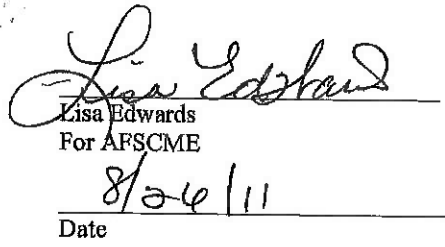 Lisa Edwards
Lisa Edwards
For AFSCME
8/26/11
Date